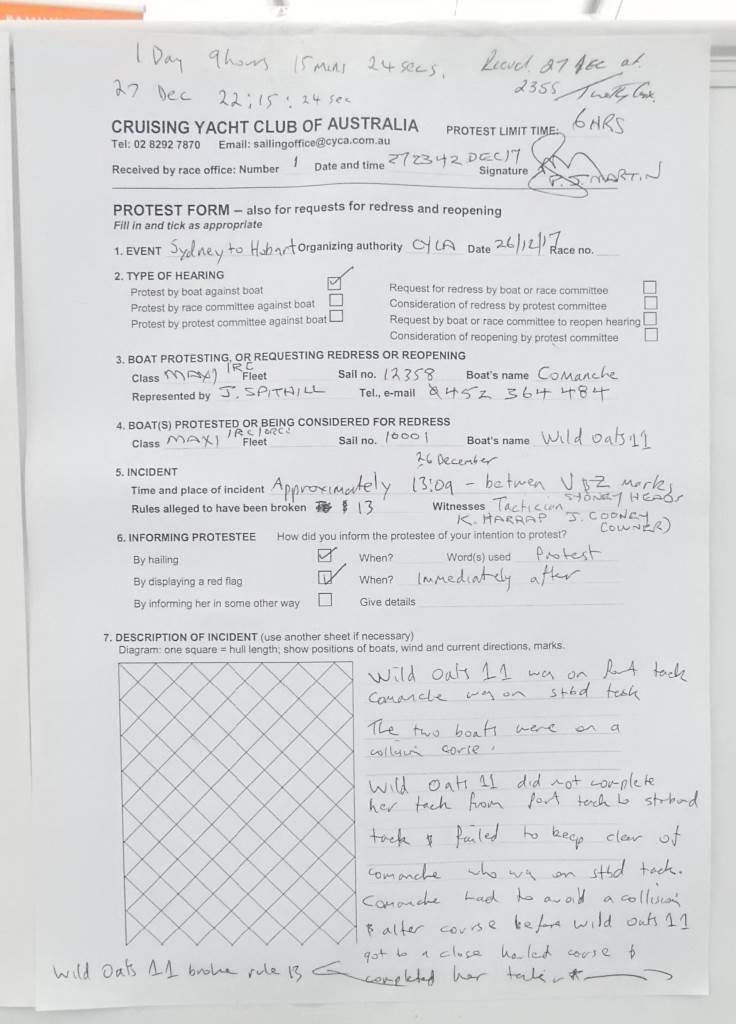 1 Day 9hours 15 mins 24 secs. Recvd. 27 DEC at
27 Dec 22:15:24 sec 2355
CRUISING YACHT CLUB OF AUSTRALIA PROTEST LIMIT TIME: 6 HRS
Tel: 02 8292 7870 Email: sailingoffice@cyca.com.au
Received by race office: Number 1 Date and time 272342 DEC17 Signature P. J. MARTIN
PROTEST FORM – also for requests for redress and reopening
Fill in and tick as appropriate
1. EVENT Sydney to Hobart Organizing authority CYCA Date 26/12/17 Race no.
2. TYPE OF HEARING
Protest by boat against boat
Protest by race committee against boat
Protest by protest committee against boat
Request for redress by boat or race committee
Consideration of redress by protest committee
Request by boat or race committee to reopen hearing
Consideration of reopening by protest committee
3. BOAT PROTESTING, OR REQUESTING REDRESS OR REOPENING
Class MAXI Fleet IRC Sail no. 12358 Boat's name Comanche
Represented by J. SPITHILL Tel., e-mail 0452 364 484
4. BOAT(S) PROTESTED OR BEING CONSIDERED FOR REDRESS
Class MAXI Fleet IRC/ORCi Sail no. 10001 Boat's name Wild Oats 11
26 December
5. INCIDENT
Time and place of incident Approximately 13:09 - betwen V & Z marks
SYDNEY HEADS
Rules alleged to have been broken 13 Witnesses Tactician
K. HARRAP J. COONEY
(OWNER)
6. INFORMING PROTESTEE How did you inform the protestee of your intention to protest?
By hailing When? Word(s) used Protest
By displaying a red flag When? Immediately after
By informing her in some other way Give details
7. DESCRIPTION OF INCIDENT (use another sheet if necessary)
Diagram: one square = hull length; show positions of boats, wind and current directions, marks.
Wild Oats 11 was on Port tack
Comanche was on stbd tack
The two boats were on a
collision corse.
Wild Oats 11 did not complete
her tack from Port tack to starboard
tack & failed to keep clear of
comanche who was on stbd tack.
Comanche had to avoid a collision
& alter course before wild oats 11
got to a close hauled corse &
completed her tack
Wild Oats 11 broke rule 13